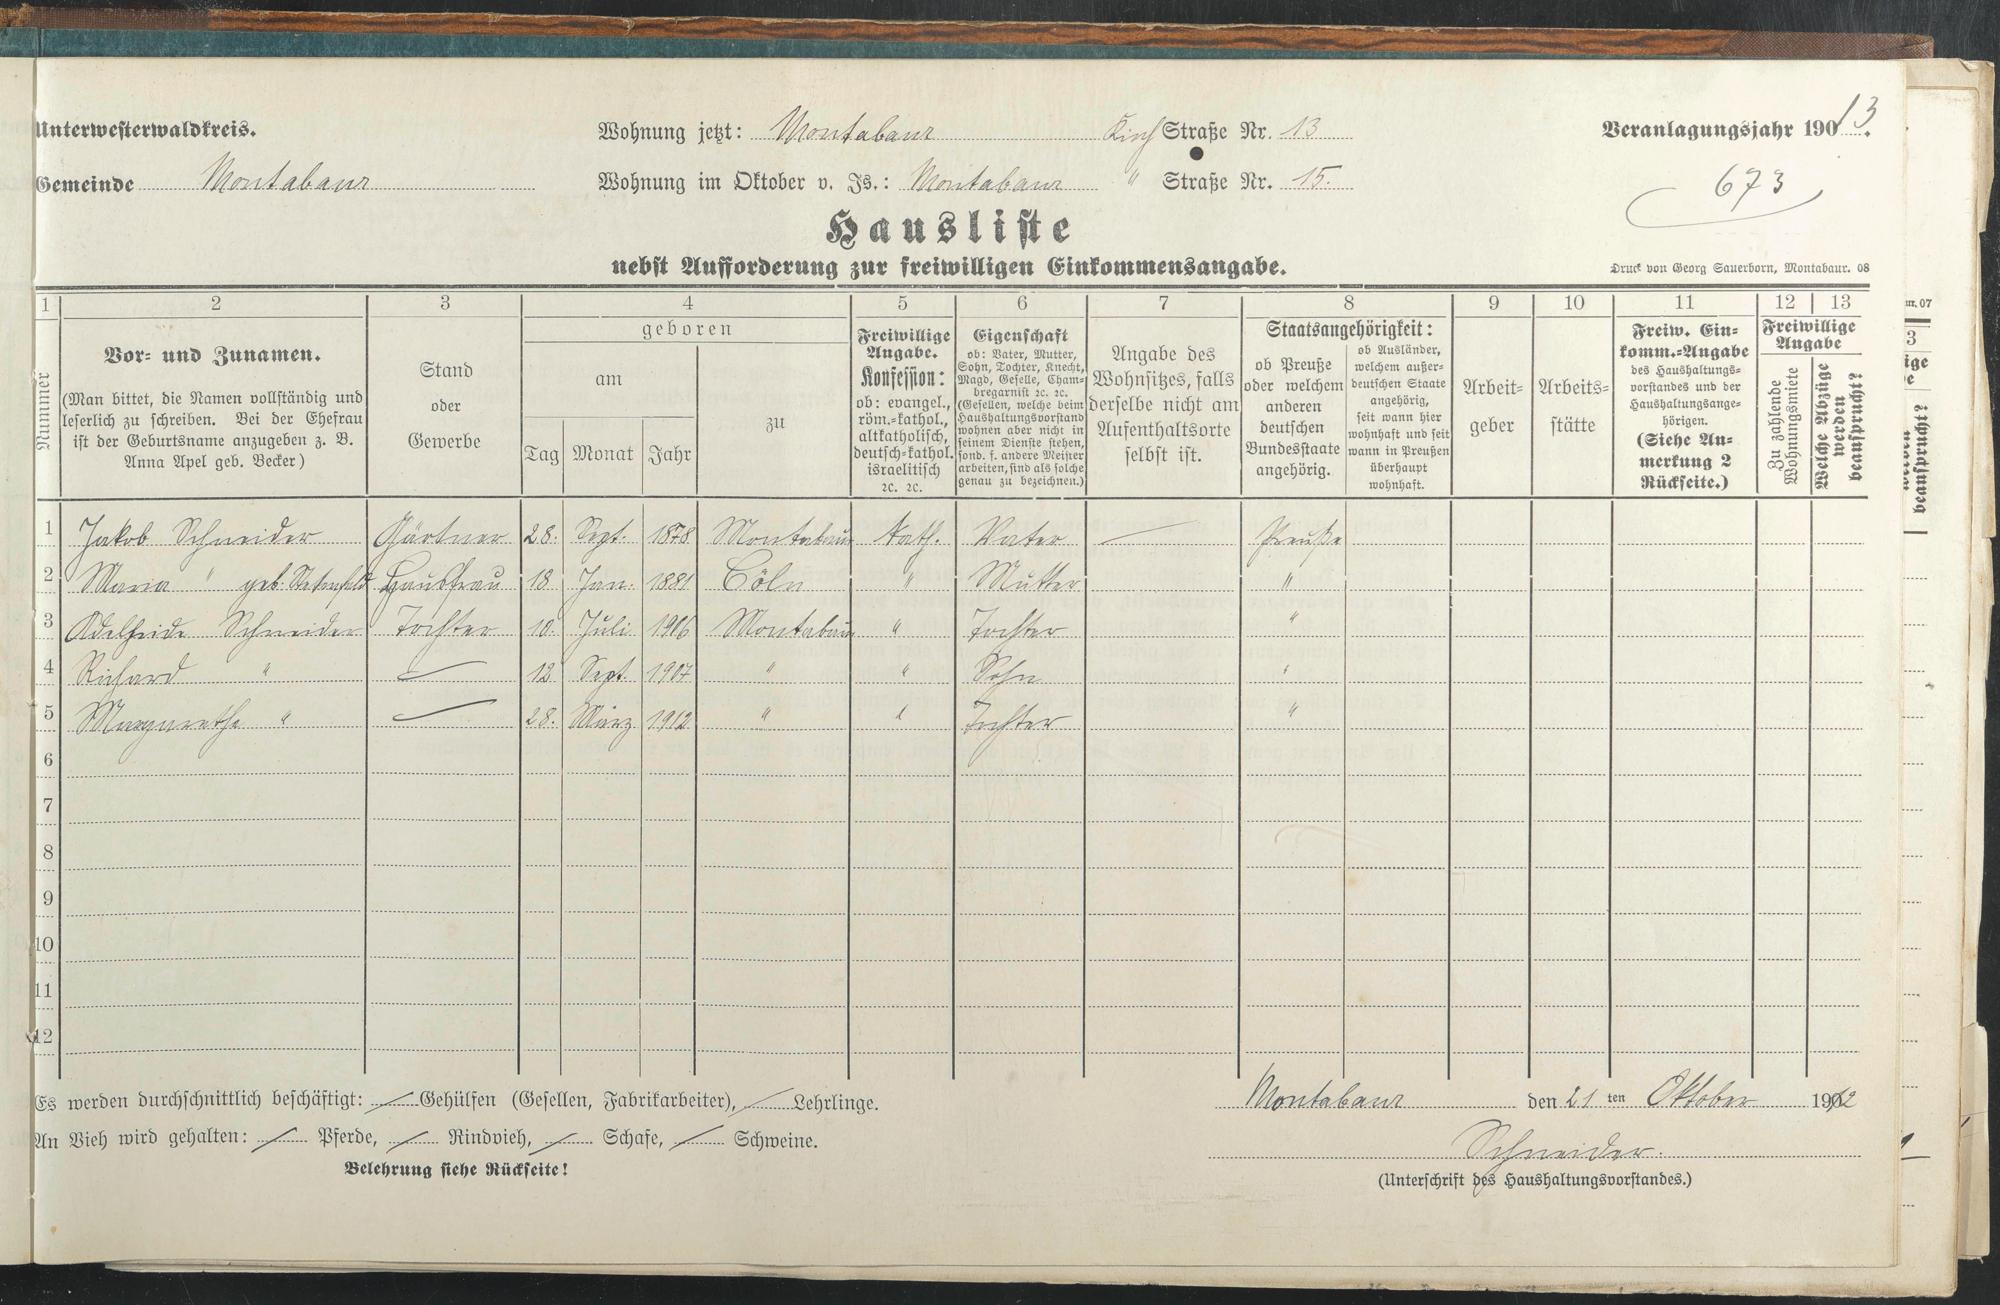 Unterwesterwaldkreis.
Wohnung jetzt: Montabaur Kirch Straße Nr. 13
Veranlagungsjahr 1913.
Gemeinde Montabaur
Wohnung im Oktober v. Js.: Montabaur " Straße Nr. 15.
673
Hausliste
nebst Aufforderung zur freiwilligen Einkommensangabe.
Druck von Georg Sauerborn, Montabaur. 08
1 2 3 4 5 6 7 8 9 10 11 12 13
Nummer
Vor- und Zunamen.
(Man bittet, die Namen vollständig und
leserlich zu schreiben. Bei der Ehefrau
ist der Geburtsname anzugeben z. B.
Anna Apel geb. Becker)
Stand
oder
Gewerbe
geboren
am
Tag Monat Jahr
zu
Freiwillige
Angabe.
Konfession:
ob: evangel.,
röm.-kathol.,
altkatholisch,
deutsch-kathol.
israelitisch
ec. ec.
Eigenschaft
ob: Vater, Mutter,
Sohn, Tochter, Knecht,
Magd, Geselle, Cham-
bregarnist ec. ec.
(Gesellen, welche beim
Haushaltungsvorstand
wohnen aber nicht in
seinem Dienste stehen,
sond. f. andere Meister
arbeiten, sind als solche
genau zu bezeichnen.)
Angabe des
Wohnsitzes, falls
derselbe nicht am
Aufenthaltsorte
selbst ist.
Staatsangehörigkeit:
ob Preuße
oder welchem
anderen
deutschen
Bundesstaate
angehörig.
ob Ausländer,
welchem außer-
deutschen Staate
angehörig,
seit wann hier
wohnhaft und seit
wann in Preußen
überhaupt
wohnhaft.
Arbeit-
geber
Arbeits-
stätte
Freiw. Ein-
komm.-Angabe
des Haushaltungs-
vorstandes und der
Haushaltungsange-
hörigen.
(Siehe An-
merkung 2
Rückseite.)
Freiwillige
Angabe
Zu zahlende
Wohnungsmiete
Welche Abzüge
werden
beansprucht?
1 Jakob Schneider Gärtner 28. Sept. 1878 Montabaur kath. Vater — Preuße
2 Maria " geb. Hausfrau 18. Jan. 1881 Cöln " Mutter "
3 Adelheide Schneider Tochter 10. Juli 1906 Montabaur " Tochter "
4 Richard " — 12 Sept. 1907 " " Sohn "
5 Margarethe " — 28. März 1912 " " Tochter "
6
7
8
9
10
11
12
Es werden durchschnittlich beschäftigt: / Gehülfen (Gesellen, Fabrikarbeiter), / Lehrlinge.
Montabaur den 21 ten Oktober 1912
An Vieh wird gehalten: / Pferde, / Rindvieh, / Schafe, / Schweine.
Schneider.
Belehrung siehe Rückseite!
(Unterschrift des Haushaltungsvorstandes.)